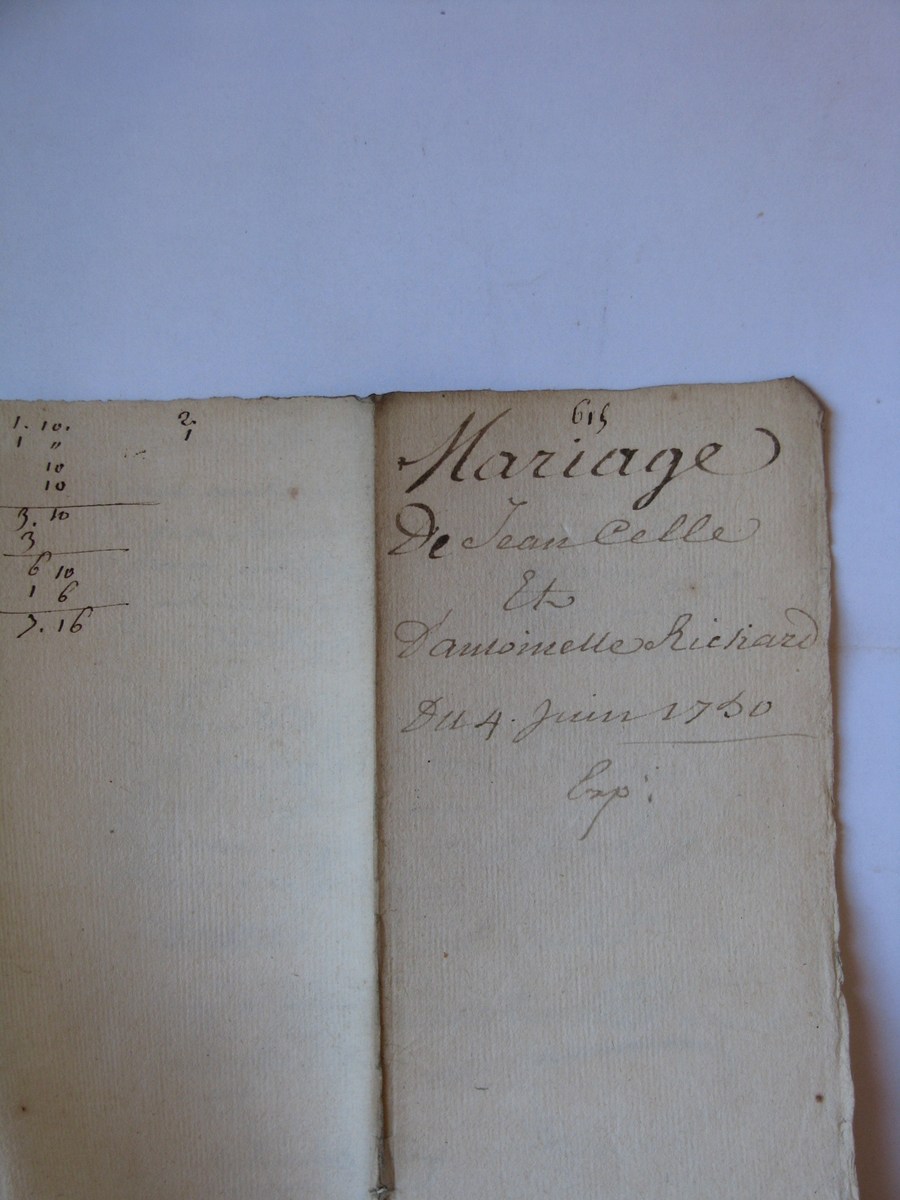 1. 10. 2.
1 " 1
10
10
3. 10
3
6 10
1 6
7. 16
615
Mariage
De Jean Celle
Et
D'antoinette Richard
Du 4. Juin 1750
Exp: